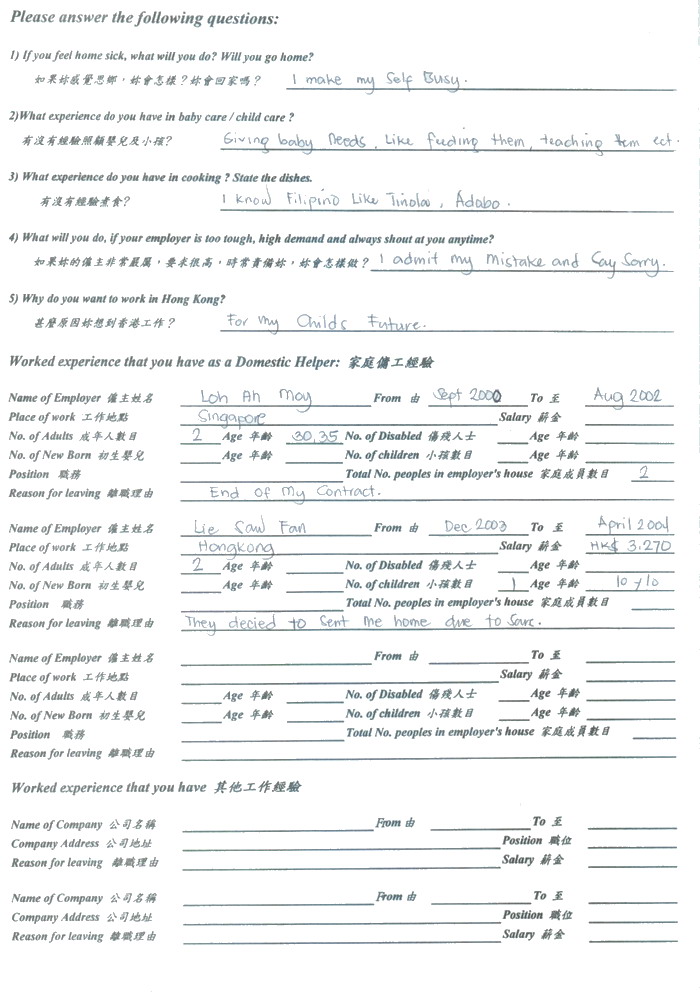 Please answer the following questions:
1) If you feel home sick, what will you do? Will you go home?
如果妳感覺思鄉，妳會怎樣？妳會回家嗎？ I make my Self Busy.
2)What experience do you have in baby care / child care ?
有沒有經驗照顧嬰兒及小孩? Giving baby Needs, Like feeding them, teaching tem ect.
3) What experience do you have in cooking ? State the dishes.
有沒有經驗煮食? I know Filipino Like Tinola, Adabo.
4) What will you do, if your employer is too tough, high demand and always shout at you anytime?
如果妳的僱主非常嚴厲，要求很高，時常責備妳，妳會怎樣做？ I admit my Mistake and Say Sorry.
5) Why do you want to work in Hong Kong?
甚麼原因妳想到香港工作？ For my Childs Future.
Worked experience that you have as a Domestic Helper: 家庭傭工經驗
Name of Employer 僱主姓名 Loh Ah Moy From 由 Sept 2000 To 至 Aug 2002
Place of work 工作地點 Singapore Salary 薪金
No. of Adults 成年人數目 2 Age 年齡 30,35 No. of Disabled 傷殘人士 Age 年齡
No. of New Born 初生嬰兒 Age 年齡 No. of children 小孩數目 Age 年齡
Position 職務 Total No. peoples in employer's house 家庭成員數目 2
Reason for leaving 離職理由 End of My Contract.
Name of Employer 僱主姓名 Lie Saw Fan From 由 Dec 2003 To 至 April 2004
Place of work 工作地點 Hongkong Salary 薪金 HK$ 3,270
No. of Adults 成年人數目 2 Age 年齡 No. of Disabled 傷殘人士 Age 年齡
No. of New Born 初生嬰兒 Age 年齡 No. of children 小孩數目 1 Age 年齡 10 y 10
Position 職務 Total No. peoples in employer's house 家庭成員數目
Reason for leaving 離職理由 They decied to Sent me home due to
Name of Employer 僱主姓名 From 由 To 至
Place of work 工作地點 Salary 薪金
No. of Adults 成年人數目 Age 年齡 No. of Disabled 傷殘人士 Age 年齡
No. of New Born 初生嬰兒 Age 年齡 No. of children 小孩數目 Age 年齡
Position 職務 Total No. peoples in employer's house 家庭成員數目
Reason for leaving 離職理由
Worked experience that you have 其他工作經驗
Name of Company 公司名稱 From 由 To 至
Company Address 公司地址 Position 職位
Reason for leaving 離職理由 Salary 薪金
Name of Company 公司名稱 From 由 To 至
Company Address 公司地址 Position 職位
Reason for leaving 離職理由 Salary 薪金